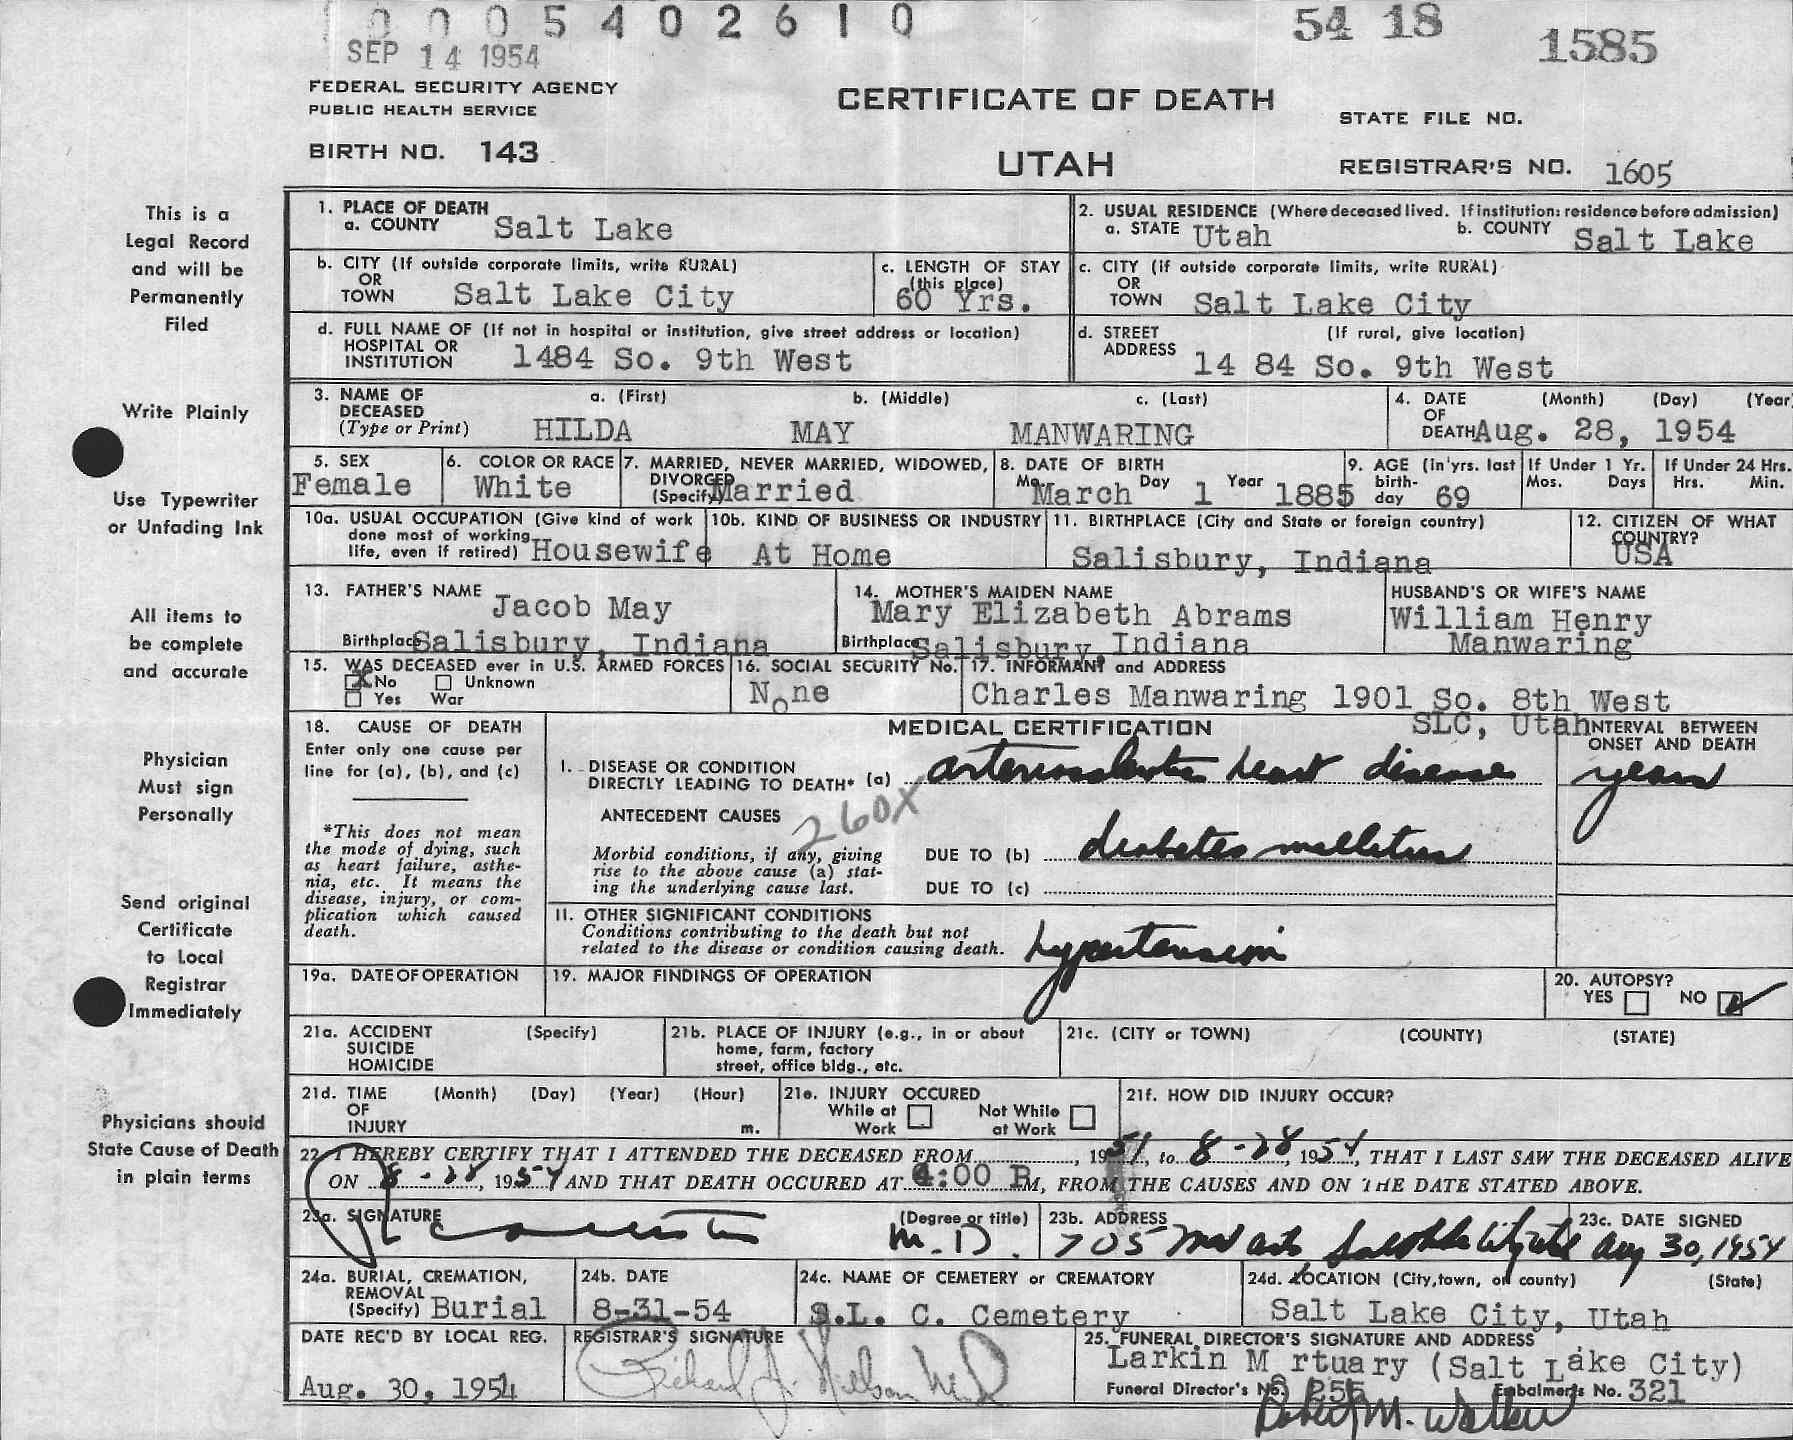 0005402610
54 18
1585
SEP 14 1954
FEDERAL SECURITY AGENCY
PUBLIC HEALTH SERVICE
CERTIFICATE OF DEATH
STATE FILE NO.
BIRTH NO. 143
UTAH
REGISTRAR'S NO. 1605
This is a
Legal Record
and will be
Permanently
Filed
Write Plainly
Use Typewriter
or Unfading Ink
All items to
be complete
and accurate
Physician
Must sign
Personally
Send original
Certificate
to Local
Registrar
Immediately
Physicians should
State Cause of Death
in plain terms
1. PLACE OF DEATH
a. COUNTY Salt Lake
2. USUAL RESIDENCE (Where deceased lived. If institution: residence before admission)
a. STATE Utah b. COUNTY Salt Lake
b. CITY (If outside corporate limits, write RURAL)
OR
TOWN Salt Lake City
c. LENGTH OF STAY
(this place)
60 Yrs.
c. CITY (If outside corporate limits, write RURAL)
OR
TOWN Salt Lake City
d. FULL NAME OF (If not in hospital or institution, give street address or location)
HOSPITAL OR
INSTITUTION 1484 So. 9th West
d. STREET (If rural, give location)
ADDRESS 14 84 So. 9th West
3. NAME OF a. (First) b. (Middle) c. (Last)
DECEASED
(Type or Print) HILDA MAY MANWARING
4. DATE (Month) (Day) (Year)
OF
DEATH Aug. 28, 1954
5. SEX
Female
6. COLOR OR RACE
White
7. MARRIED, NEVER MARRIED, WIDOWED,
DIVORCED
(Specify) Married
8. DATE OF BIRTH
Mo. March Day 1 Year 1885
9. AGE (in yrs. last
birth-
day 69
If Under 1 Yr.
Mos. Days
If Under 24 Hrs.
Hrs. Min.
10a. USUAL OCCUPATION (Give kind of work
done most of working
life, even if retired) Housewife
10b. KIND OF BUSINESS OR INDUSTRY
At Home
11. BIRTHPLACE (City and State or foreign country)
Salisbury, Indiana
12. CITIZEN OF WHAT
COUNTRY?
USA
13. FATHER'S NAME Jacob May
Birthplace Salisbury, Indiana
14. MOTHER'S MAIDEN NAME
Mary Elizabeth Abrams
Birthplace Salisbury, Indiana
HUSBAND'S OR WIFE'S NAME
William Henry
Manwaring
15. WAS DECEASED ever in U.S. ARMED FORCES
X No Unknown
Yes War
16. SOCIAL SECURITY No.
None
17. INFORMANT and ADDRESS
Charles Manwaring 1901 So. 8th West
SLC, Utah
18. CAUSE OF DEATH
Enter only one cause per
line for (a), (b), and (c)
*This does not mean
the mode of dying, such
as heart failure, asthe-
nia, etc. It means the
disease, injury, or com-
plication which caused
death.
MEDICAL CERTIFICATION
INTERVAL BETWEEN
ONSET AND DEATH
I. DISEASE OR CONDITION
DIRECTLY LEADING TO DEATH* (a) arteriosclerotic heart disease years
ANTECEDENT CAUSES
260X
Morbid conditions, if any, giving
rise to the above cause (a) stat-
ing the underlying cause last.
DUE TO (b) diabetes mellitus
DUE TO (c)
II. OTHER SIGNIFICANT CONDITIONS
Conditions contributing to the death but not
related to the disease or condition causing death. hypertension
19a. DATE OF OPERATION
19. MAJOR FINDINGS OF OPERATION
20. AUTOPSY?
YES NO
21a. ACCIDENT (Specify)
SUICIDE
HOMICIDE
21b. PLACE OF INJURY (e.g., in or about
home, farm, factory
street, office bldg., etc.
21c. (CITY or TOWN) (COUNTY) (STATE)
21d. TIME (Month) (Day) (Year) (Hour)
OF
INJURY m.
21e. INJURY OCCURED
While at Not While
Work at Work
21f. HOW DID INJURY OCCUR?
22. I HEREBY CERTIFY THAT I ATTENDED THE DECEASED FROM , 1951, to 8-28, 1954, THAT I LAST SAW THE DECEASED ALIVE
ON 8-28, 1954 AND THAT DEATH OCCURED AT 4:00 P M, FROM THE CAUSES AND ON THE DATE STATED ABOVE.
23a. SIGNATURE (Degree or title)
M.D.
23b. ADDRESS
705 Med arts Salt Lake City Utah
23c. DATE SIGNED
Aug 30, 1954
24a. BURIAL, CREMATION,
REMOVAL
(Specify) Burial
24b. DATE
8-31-54
24c. NAME OF CEMETERY or CREMATORY
S.L. C. Cemetery
24d. LOCATION (City, town, or county) (State)
Salt Lake City, Utah
DATE REC'D BY LOCAL REG.
Aug. 30, 1954
REGISTRAR'S SIGNATURE
Richard J. Nelson M.D.
25. FUNERAL DIRECTOR'S SIGNATURE AND ADDRESS
Larkin Mortuary (Salt Lake City)
Funeral Director's No. 255 Embalmer's No. 321
Robert M. Walker